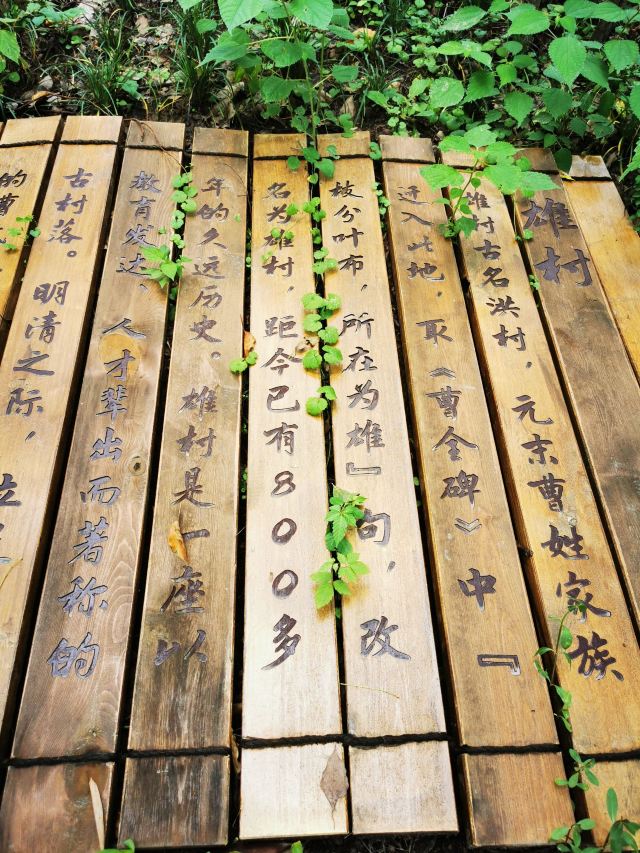 雄村
雄村古名洪村，元末曹姓家族
迁入此地，取《曹全碑》中『
枝分叶布，所在为雄』句，改
名为雄村，距今已有800多
年的久远历史。雄村是一座以
教育发达、人才辈出而著称的
古村落。明清之际，
的曹